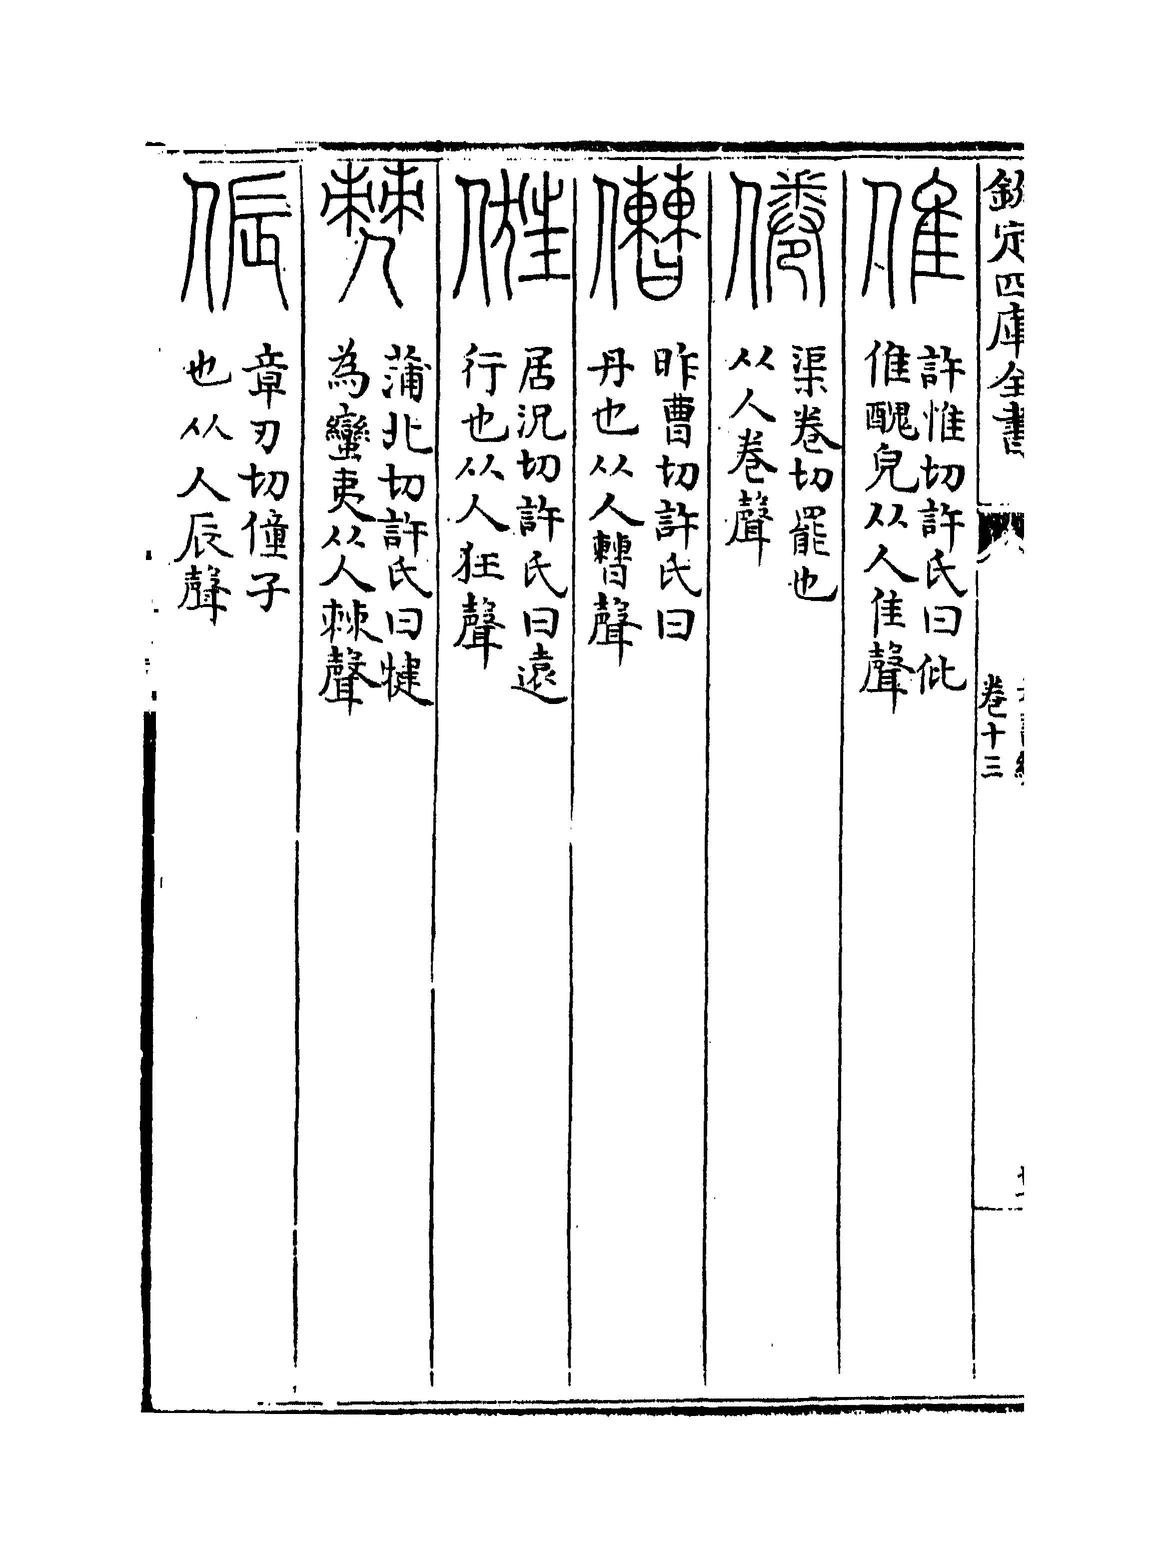 欽定四庫全書
卷十三
倠
許惟切許氏曰仳
倠醜皃从人隹聲
倦
渠卷切罷也
从人卷聲
傮
昨曹切許氏曰
終也从人曹聲
俇
居況切許氏曰遠
行也从人狂聲
僰
蒲北切許氏曰犍
為蠻夷从人棘聲
侲
章刃切僮子
也从人辰聲